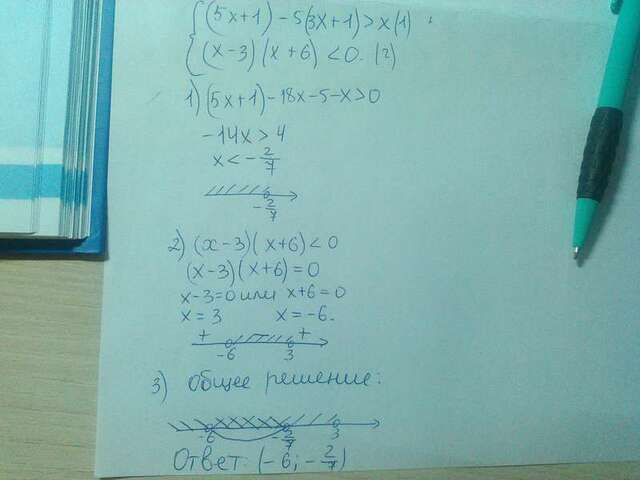 {(5x+1)-5(3x+1)>x (1)
{(x-3)(x+6)<0. (2)
1) (5x+1)-18x-5-x>0
-14x>4
x<-2/7
-2/7
2) (x-3)(x+6)<0
(x-3)(x+6)=0
x-3=0 или x+6=0
x=3 x=-6.
+ - +
-6 3
3) общее решение:
-6 -2/7 3
Ответ: (-6; -2/7)